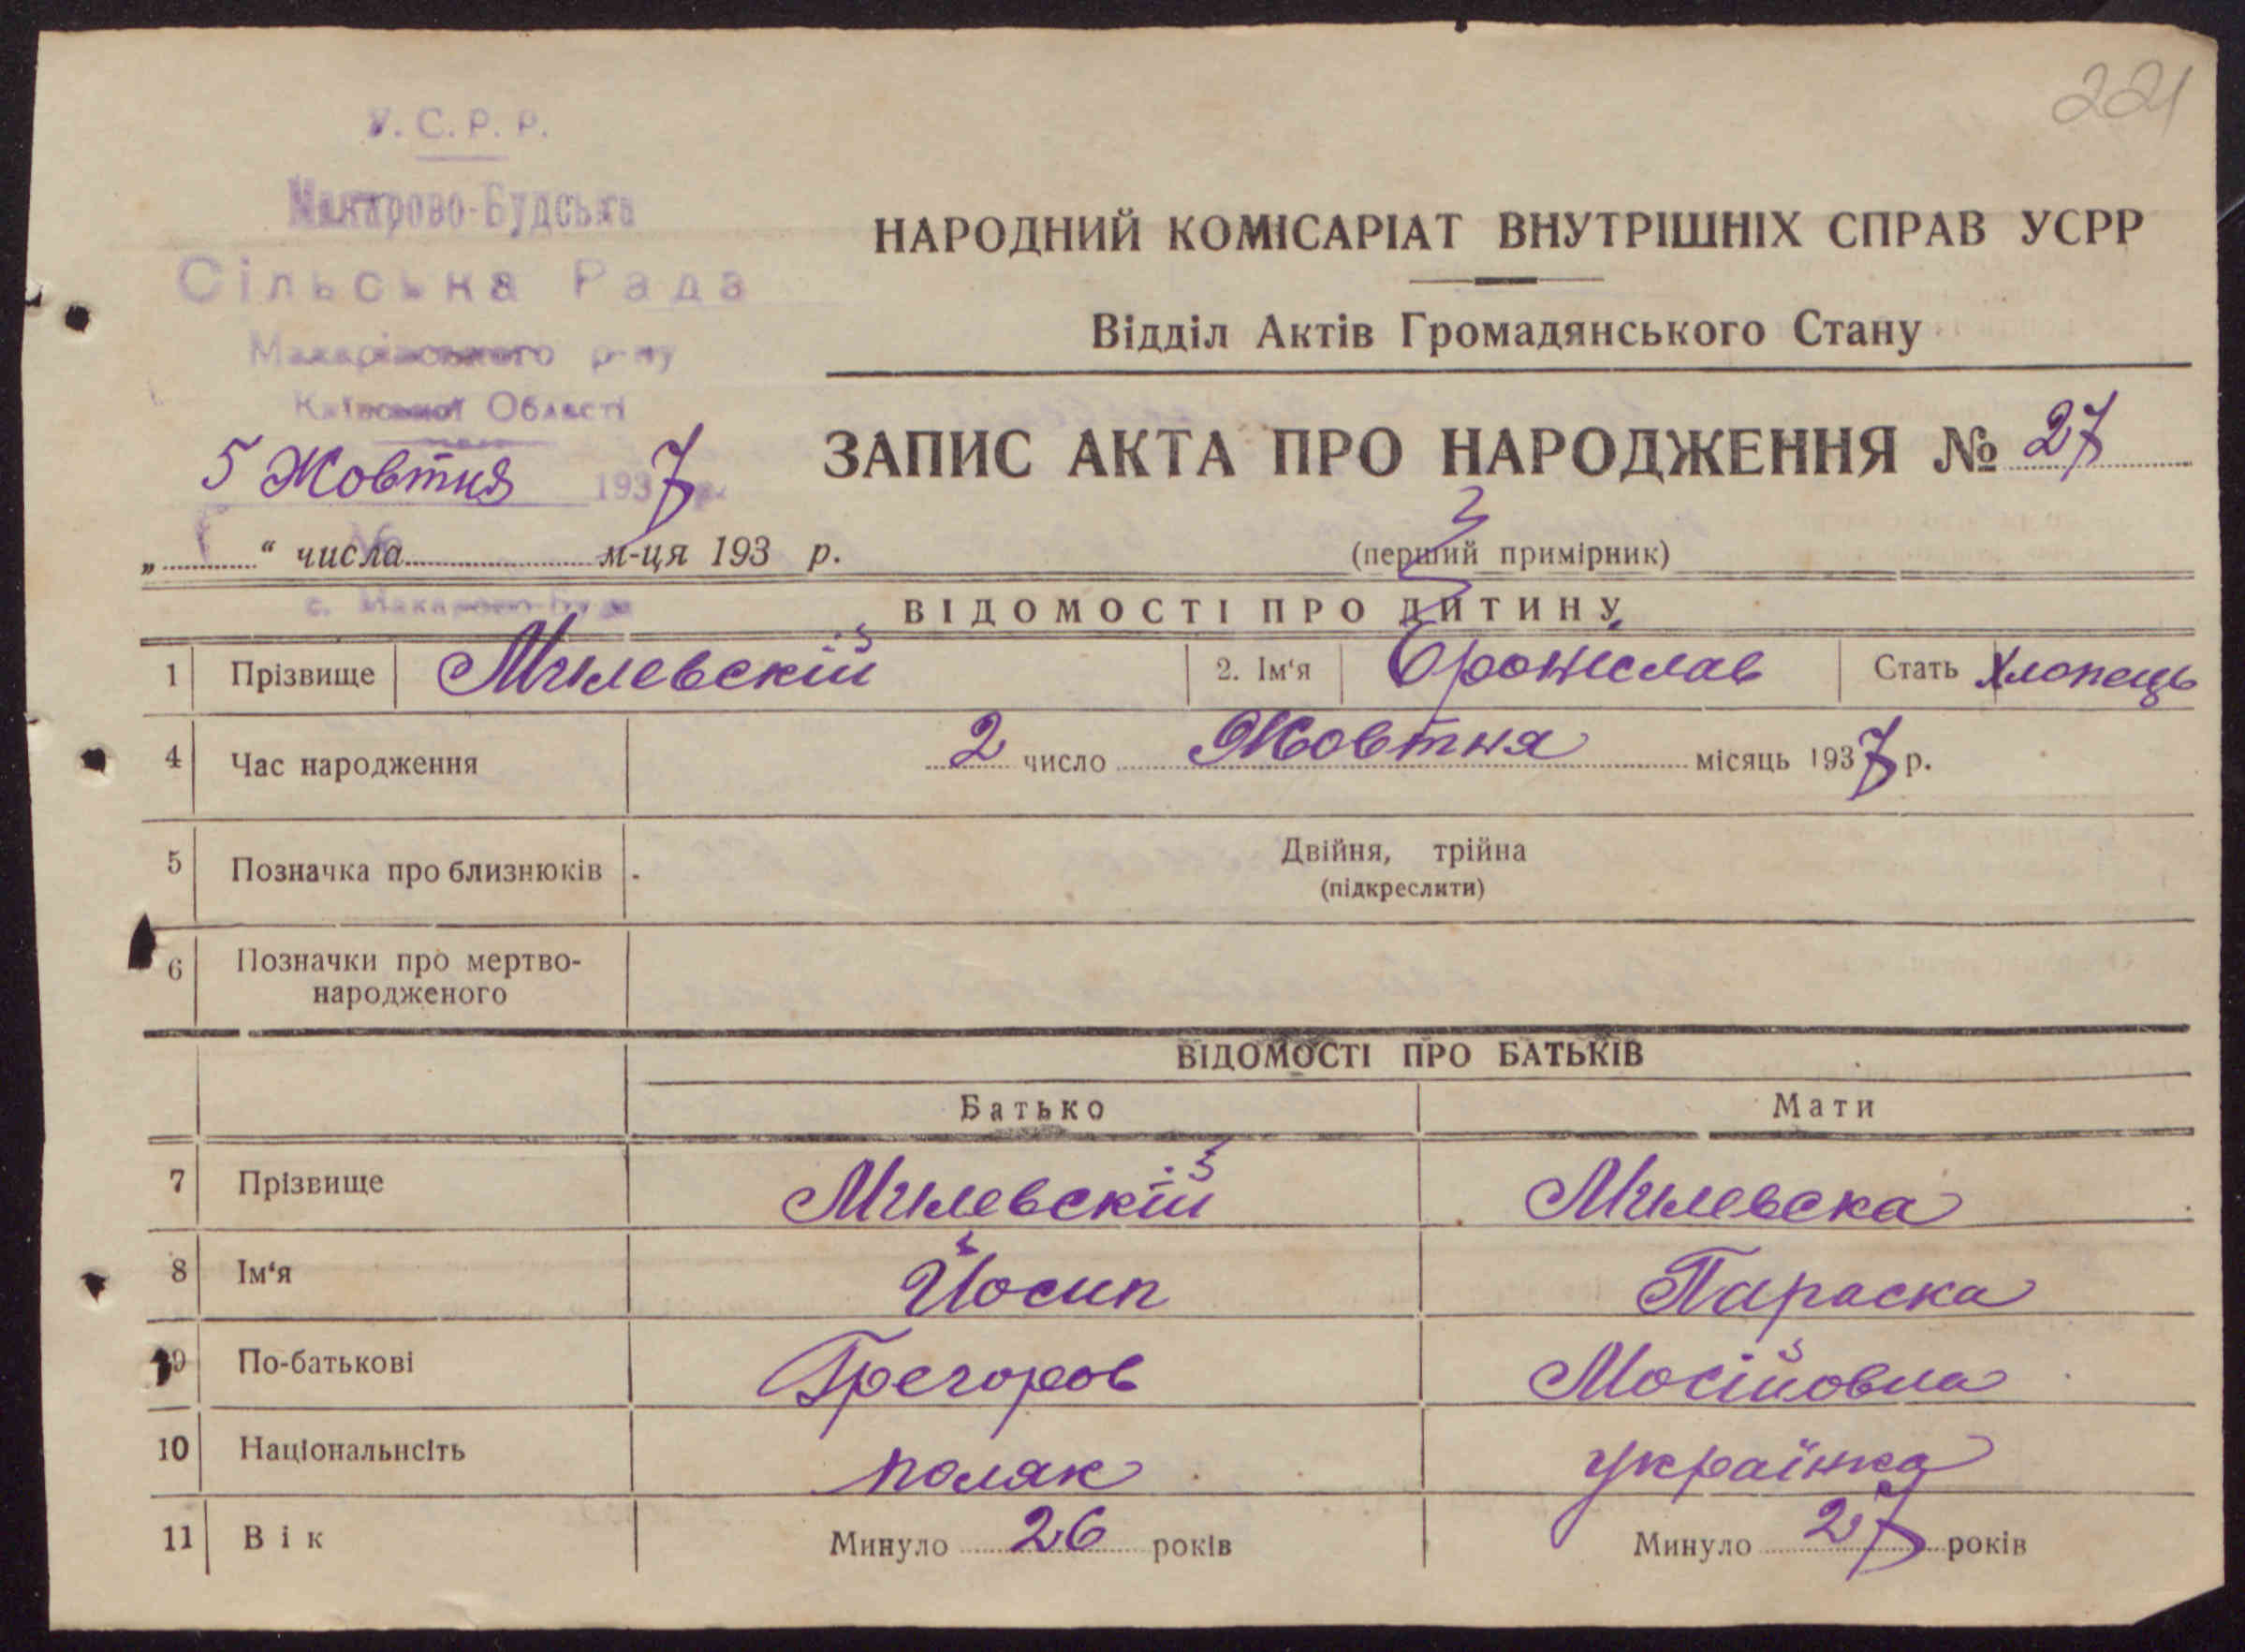 221
У. С. Р. Р.
Макарово-Будська
Сільська Рада
Макарівського р-ну
Київської Області
5 Жовтня 1937
№
с. Макарово-Буда
НАРОДНИЙ КОМІСАРІАТ ВНУТРІШНІХ СПРАВ УСРР
Відділ Актів Громадянського Стану
ЗАПИС АКТА ПРО НАРОДЖЕННЯ № 27
„ “ числа м-ця 193 р.
(перший примірник)
ВІДОМОСТІ ПРО ДИТИНУ
1 Прізвище Милевский 2. Ім‘я Броніслав Стать Хлопець
4 Час народження 2 число Жовтня місяць 1937 р.
5 Позначка про близнюків Двійня, трійна
(підкреслити)
6 Позначки про мертво-
народженого
ВІДОМОСТІ ПРО БАТЬКІВ
Батько Мати
7 Прізвище Милевскій Милевска
8 Ім‘я Йосип Параска
9 По-батькові Грегоров Мосійовна
10 Національнсіть поляк українка
11 Вік Минуло 26 років Минуло 27 років